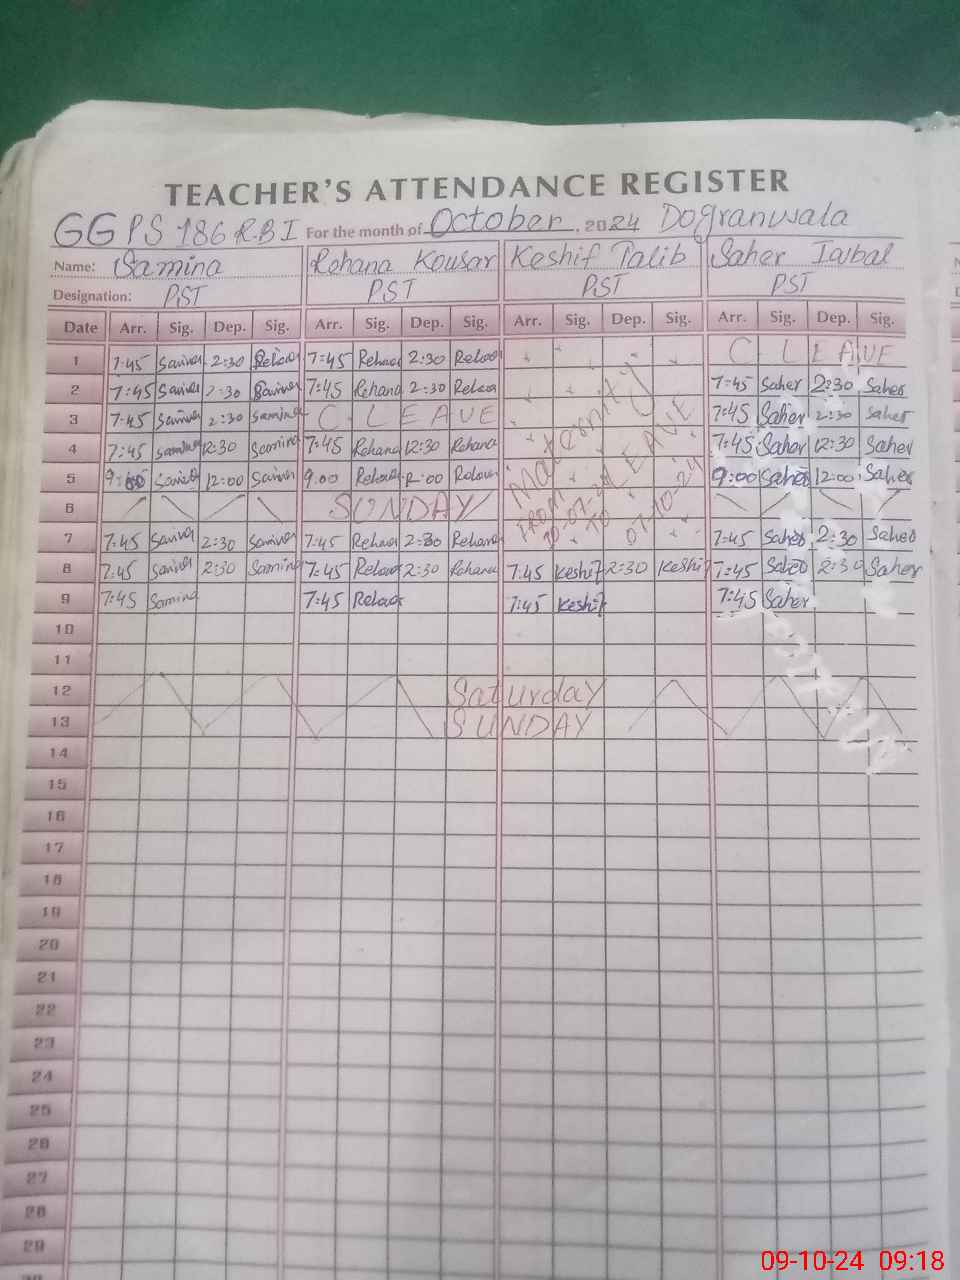 TEACHER'S ATTENDANCE REGISTER
GGPS 186 R.B I For the month of October, 2024 Dogranwala
Name: Samina Rehana Kousar Keshif Talib Saher Iqbal
Designation: PST PST PST PST
Date Arr. Sig. Dep. Sig. Arr. Sig. Dep. Sig. Arr. Sig. Dep. Sig. Arr. Sig. Dep. Sig.
1 7:45 2:30 7:45 2:30 C. LEAVE
2 7:45 2:30 7:45 Rehana 2:30 7:45 Saher 2:30 Saher
3 7:45 2:30 Samina C. LEAVE 7:45 Saher 2:30 Saher
4 7:45 12:30 Samina 7:45 Rehana 12:30 Rehana 7:45 Saher 12:30 Saher
5 9:00 12:00 9.00 12:00 9:00 Saher 12:00 Saher
Maternity LEAVE
FROM 10-07-24 TO 07-10-24
6 SUNDAY
7 7:45 2:30 7:45 2:30 Rehana 7:45 Saher 2:30 Saher
8 7:45 2:30 Samina 7:45 2:30 Rehana 7:45 Keshif 2:30 Keshif 7:45 Saher 2:30 Saher
9 7:45 Samina 7:45 7:45 Keshif 7:45 Saher
10
11
12 Saturday
13 SUNDAY
14
15
16
17
18
19
20
21
22
23
24
25
26
27
28
29
09-10-24 09:18